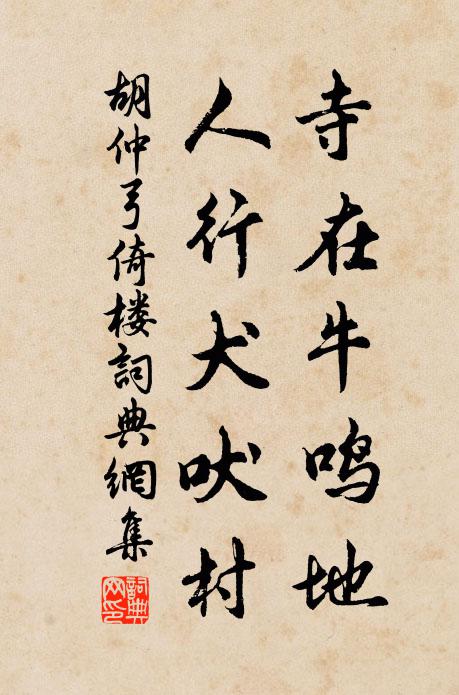 寺在牛鸣地
人行犬吠村
胡仲弓倚楼詞典網集
詞典